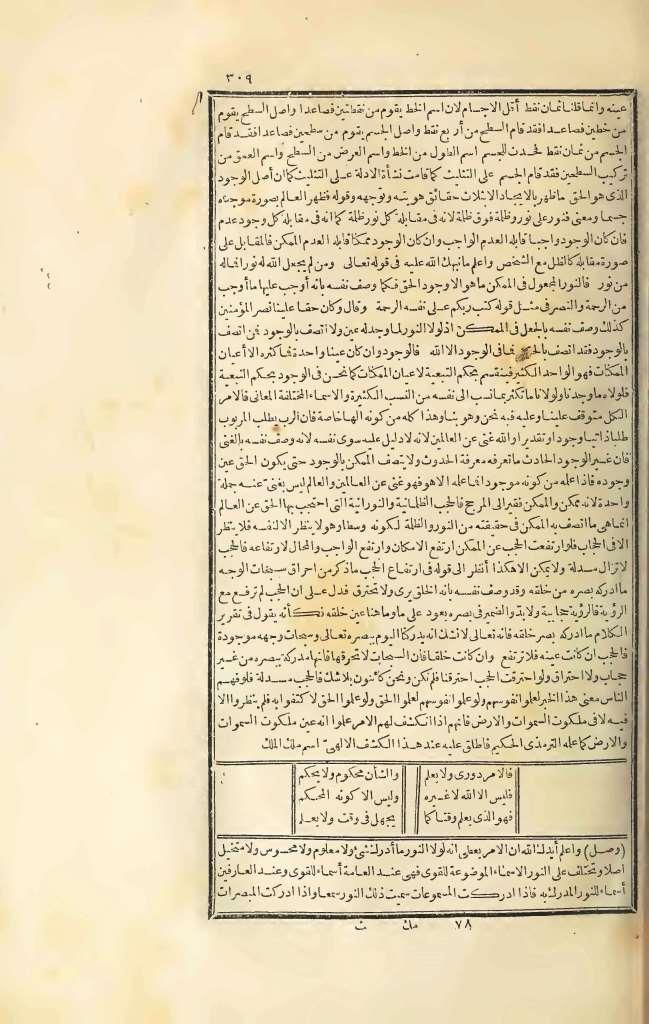 ٣٠٩
عينه وانما قلنا ثمان نقط أقل الاجسام لان اسم الخط يقوم من نقطتين فصاعدا وأصل السطح يقوم
من خطين فصاعدا فقد قام السطح من أربع نقط وأصل الجسم يقوم من سطحين فصاعدا فقد قام
الجسم من ثمان نقط فحدث للجسم اسم الطول من الخط واسم العرض من السطح واسم العمق من
تركيب السطحين فقد قام الجسم على التثليث كما قامت نشأة الادلة على التثليث كما ان أصل الوجود
الذى هو الحق ما ظهر بالايجاد الا بثلاث حقائق هويته وتوجهه وقوله فظهر العالم بصورة موجده
حسا ومعنى فنور على نور وظلمة فوق ظلمة لانه فى مقابلة كل نور ظلمة كما انه فى مقابلة كل وجود عدم
فان كان الوجود واجبا قابله العدم الواجب وان كان الوجود ممكنا قابله العدم الممكن فالمقابل على
صورة مقابله كالظل مع الشخص واعلم ما نبهك الله عليه فى قوله تعالى ومن لم يجعل الله له نورا فماله
من نور فالنور المجعول فى الممكن ما هو الا وجود الحق فكما وصف نفسه بانه أوجب عليها ما أوجب
من الرحمة والنصر فى مثل قوله كتب ربكم على نفسه الرحمة وقال وكان حقا علينا نصر المؤمنين
كذلك وصف نفسه بالجعل فى الممكن اذ لولا النور لما وجد له عين ولا اتصف بالوجود فمن اتصف
بالوجود فقد اتصف بالحق فما فى الوجود الا الله فالوجود وان كان عينا واحدة فما كثره الا أعيان
الممكنات فهو الواحد الكثير فينقسم بحكم التبعية لاعيان الممكنات كما نحن فى الوجود بحكم التبعية
فلولاه ما وجدنا ولولانا ما تكثر بما نسب الى نفسه من النسب الكثيرة والاسماء المختلفة المعانى فالامر
الكل متوقف علينا وعليه فبه نحن وهو بنا وهذا كله من كونه الها خاصة فان الرب يطلب المربوب
طلبا ذاتيا وجودا وتقديرا والله غنى عن العالمين لانه لا دليل عليه سوى نفسه لانه وصف نفسه بالغنى
فان غير الوجود الحادث ما تعرفه معرفة الحدوث ولا يتصف الممكن بالوجود حتى يكون الحق عين
وجوده فاذا علمه من كونه موجودا فما علمه الا هو فهو غنى عن العالمين والعالم ليس بغنى عنه جملة
واحدة لانه ممكن والممكن فقير الى المرجح فالحجب الظلمانية والنورانية التى احتجب بها الحق عن العالم
انما هى ما اتصف به الممكن فى حقيقته من النور والظلمة لكونه وسطا وهو لا ينظر الا لنفسه فلا ينظر
الا فى الحجاب فلو ارتفعت الحجب عن الممكن ارتفع الامكان وارتفع الواجب والمحال لارتفاعه فالحجب
لا تزال مسدلة ولا يمكن الا هكذا أنظر الى قوله فى ارتفاع الحجب ما ذكر من احراق سبحات الوجه
ما أدركه بصره من خلقه وقد وصف نفسه بانه الخلق يرى ولا تحترق فدل على ان الحجب لم ترفع مع
الرؤية فالرؤية حجابية ولابد والضمير فى بصره يعود على ما وما هنا عين خلقه فكأنه يقول فى تقرير
الكلام ما أدركه بصر خلقه فانه تعالى لا شك انه يدركنا اليوم ببصره تعالى وسبحات وجهه موجودة
فالحجب ان كانت عينه فلا ترتفع وان كانت خلقا فان السبحات لا تحرقها فانها مدركة ببصره من غير
حجاب ولا احتراق ولو احترقت الحجب احترقنا فلم نكن ونحن كائنون بلا شك فالحجب مسدلة فلو فهم
الناس معنى هذا الخبر لعلموا نفوسهم ولو علموا نفوسهم لعلموا الحق ولو علموا الحق لاكتفوا به فلم ينظروا الا
فيه لا فى ملكوت السموات والارض فانهم اذا انكشف لهم الامر علموا انه عين ملكوت السموات
والارض كما علمه الترمذى الحكيم فاطلق عليه عند هذا الكشف الالهى اسم ملك الملك
فالامر دورى ولا يعلم والشأن محكوم ولا يحكم
فليس الا الله لا غيره وليس الا كونه المحكم
فهو الذى يعلم وقتا كما يجهل فى وقت ولا يعلم
(وصل) واعلم أيدك الله ان الامر يعطى انه لولا النور ما أدرك شئ لا معلوم ولا محسوس ولا متخيل
أصلا وتختلف على النور الاسماء الموضوعة للقوى فهى عند العامة أسماء للقوى وعند العارفين
أسماء للنور المدرك به فاذا أدركت المسموعات سميت ذلك النور سمعا واذا أدركت المبصرات
٧٨ مك ت